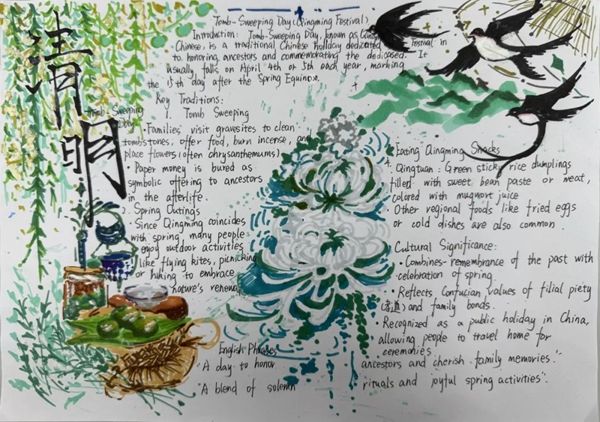 清明
Tomb-Sweeping Day (Qingming Festival)
Introduction: Tomb-Sweeping Day, known as Festival in
Chinese, is a traditional Chinese holiday dedicated
to honoring ancestors and commemorating the deceased. It
usually falls on April 4th or 5th each year, marking
the 15th day after the Spring Equinox.
Key Traditions:
1. Tomb Sweeping
Tomb-Sweeping
Day
·Families' visit gravesites to clean
tombstones, offer food, burn incense, and
place flowers (often chrysanthemums)
· Paper money is bured as
symbolic offering to ancestors
in the afterlife.
2. Spring Outings
· Since Qingming coincides
with spring, many people
enjoy outdoor activities
like flying kites, picnicking
or hiking to embrace
nature's renewal
Eating Qingming Snacks
· Qingtuan: Green sticky rice dumplings
filled with sweet bean paste or meat,
colored with mugwort juice
· Other regional foods like fried eggs
or cold dishes are also common
Cultural Significance:
· Combines remembrance of the past with
celebration of spring
· Reflects Confucian values of filial piety
(孝道) and family bonds.
· Recognized as a public holiday in China,
allowing people to travel home for
ceremonies
English Phrases
"A day to honor ancestors and cherish family memories."
"A blend of solemn rituals and joyful spring activities".